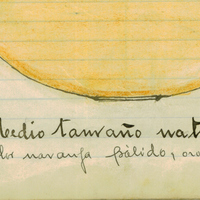 Medio tamaño nat
naranja pálido, ora